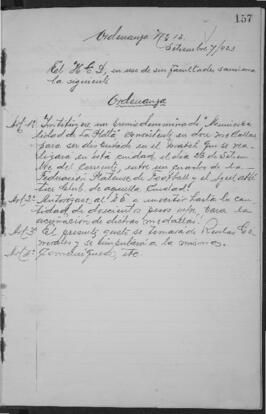 157
Ordenanza Nº 12.
Setiembre 7/923
El H C D, en uso de sus facultades sanciona
la siguiente
Ordenanza
Art 1º Institúyese un premio denominado "Municipa-
lidad de La Plata" consistente en doce medallas
para ser disputado en el match que se rea-
lizará en esta ciudad el día de Setiem-
bre del corriente, entre un cuadro de la
Federación Platense de Football y el Atlé-
tico Club de aquella Ciudad.
Art 2º Autorízase al D E a invertir hasta la can-
tidad de doscientos pesos m/n, para la
acuñación de dichas medallas.
Art 3º El presente gasto se tomará de Rentas Ge-
nerales y se imputará a la misma.
Art 4º Comuníquese, etc